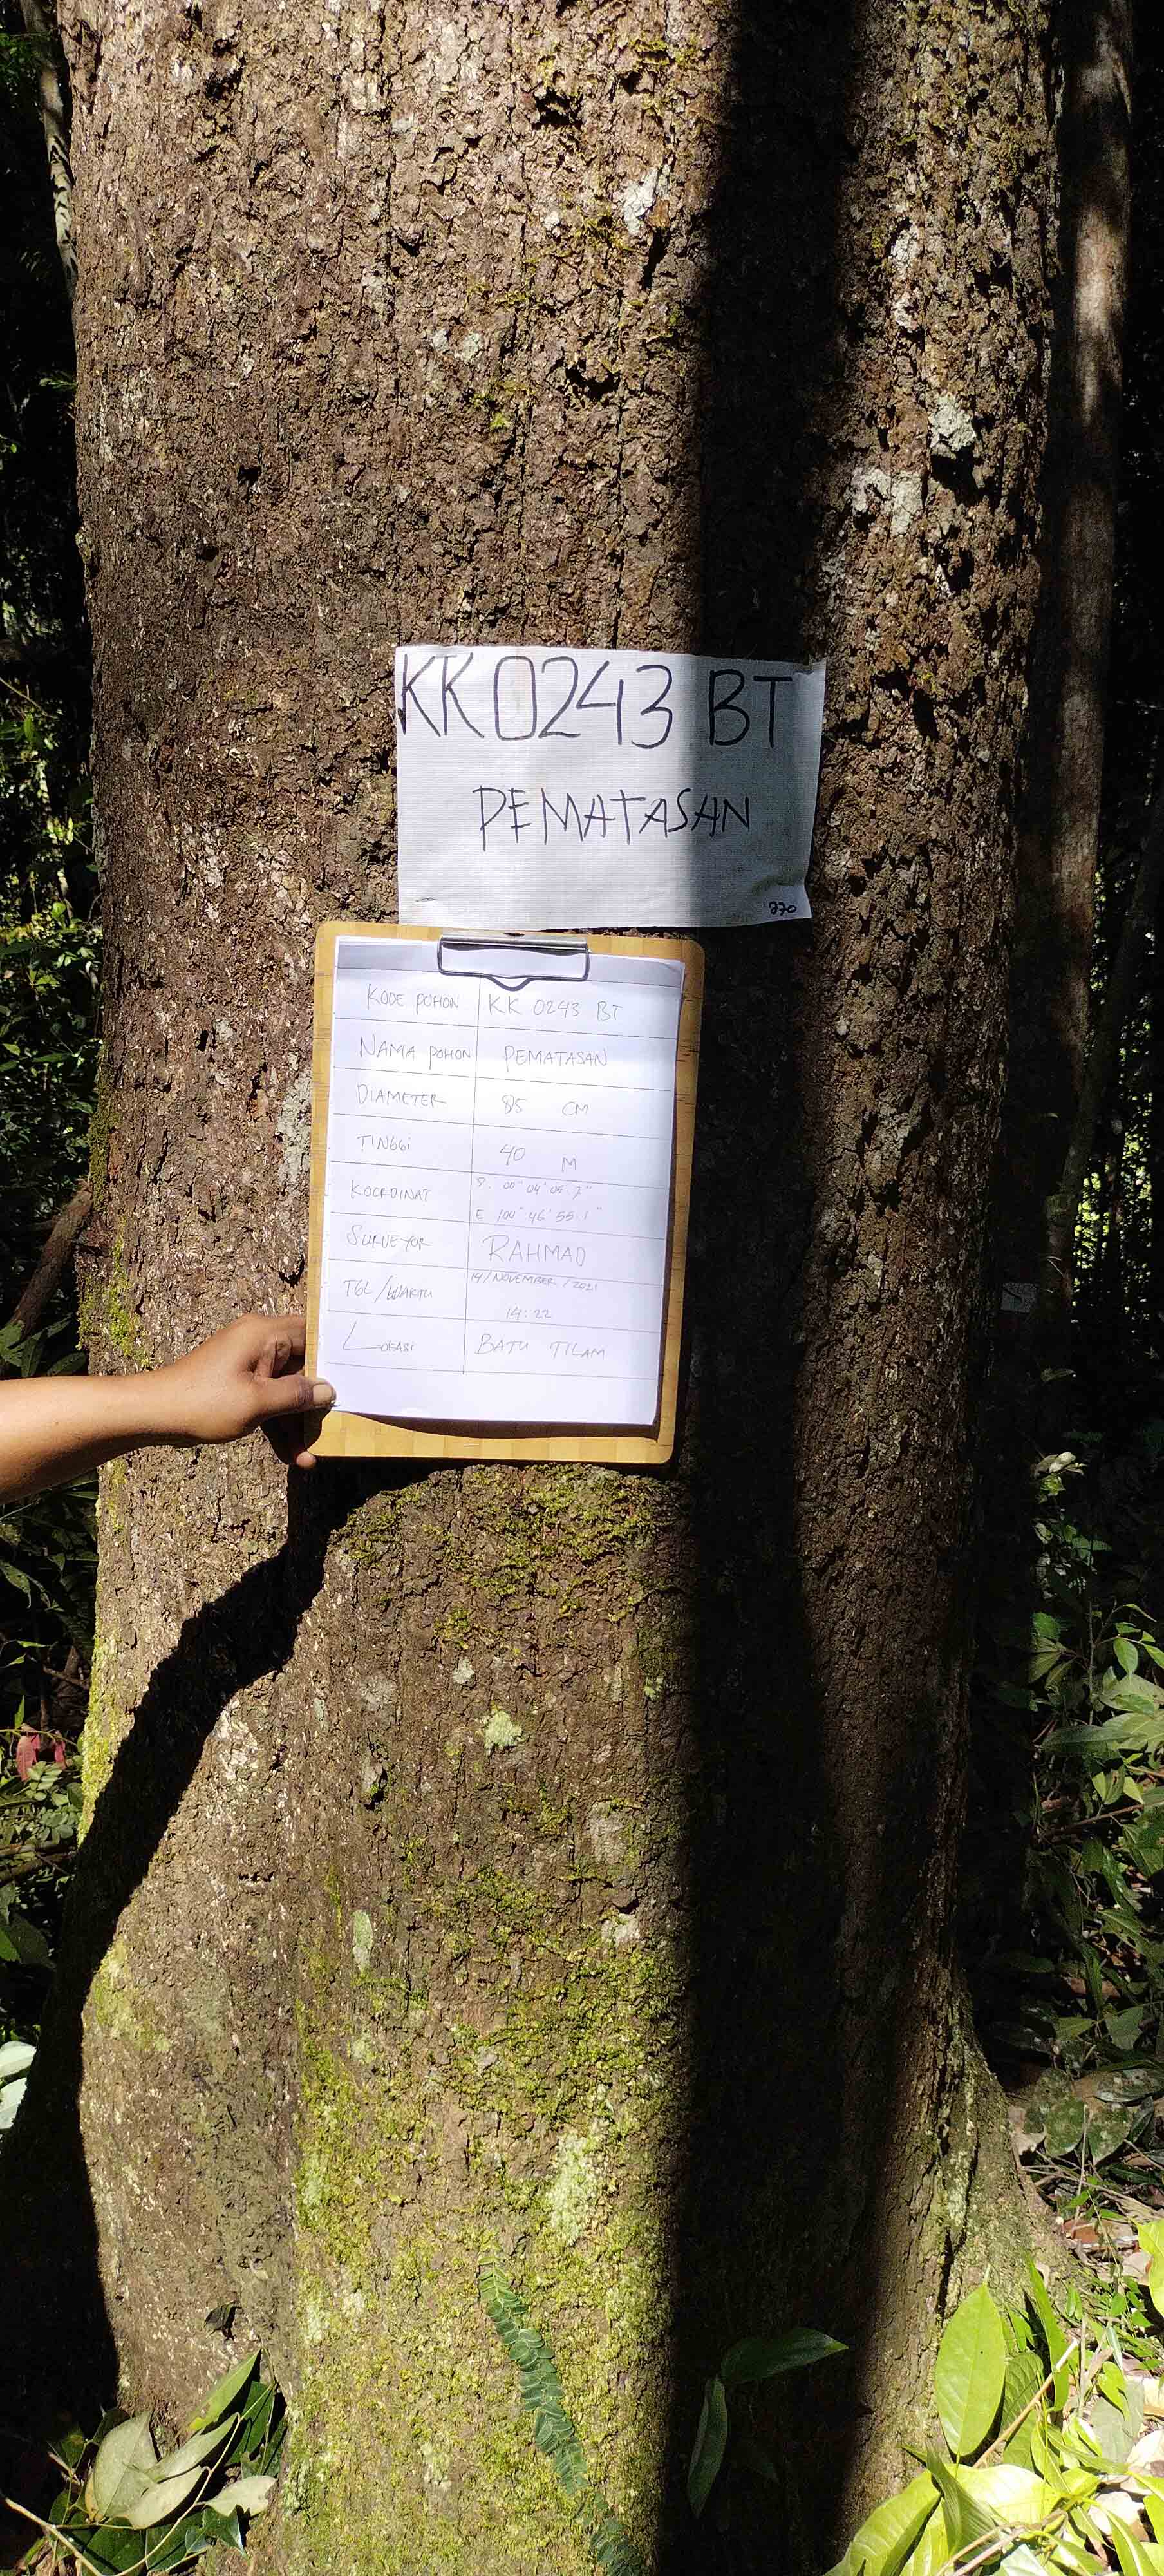 KK 0243 BT
PEMATASAN
270
KODE POHON KK 0243 BT
NAMA POHON PEMATASAN
DIAMETER 85 CM
TINGGI 40 M
KOORDINAT S. 00° 04' 05.7"
E 100° 46' 55.1"
SURVEYOR RAHMAD
TGL/WAKTU 14/NOVEMBER/2021
14:22
LOKASI BATU TILAM